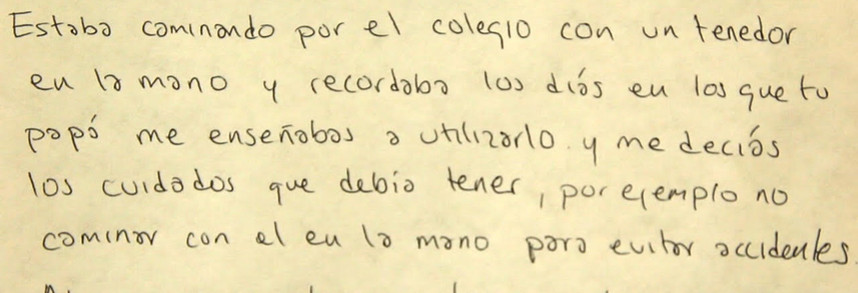 Estaba caminando por el colegio con un tenedor
en la mano y recordaba los días en los que tu
papá me enseñabas a utilizarlo y me decías
los cuidados que debía tener, por ejemplo no
caminar con el en la mano para evitar accidentes